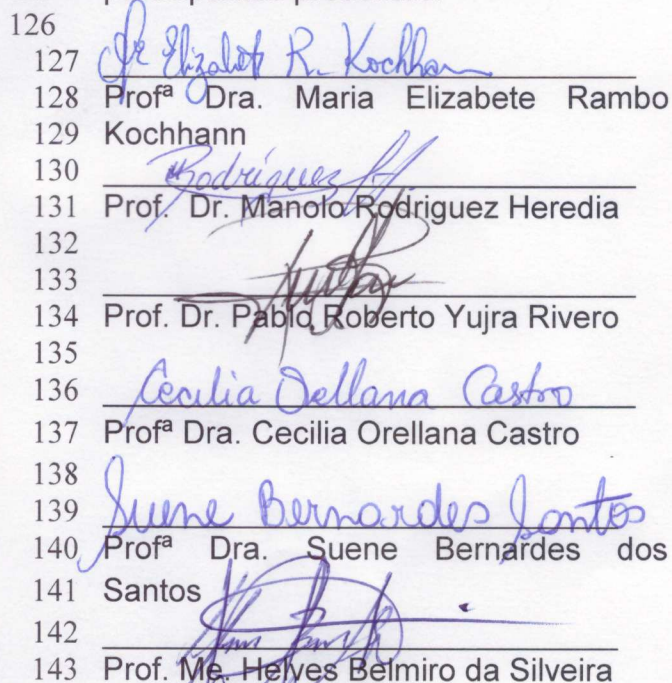 126
127 Elizabete R. Kochhann
128 Profª Dra. Maria Elizabete Rambo
129 Kochhann
130 Rodriguez
131 Prof. Dr. Manolo Rodriguez Heredia
132
133
134 Prof. Dr. Pablo Roberto Yujra Rivero
135
136 Cecilia Orellana Castro
137 Profª Dra. Cecilia Orellana Castro
138
139 Suene Bernardes Santos
140 Profª Dra. Suene Bernardes dos
141 Santos
142
143 Prof. Me. Helves Belmiro da Silveira